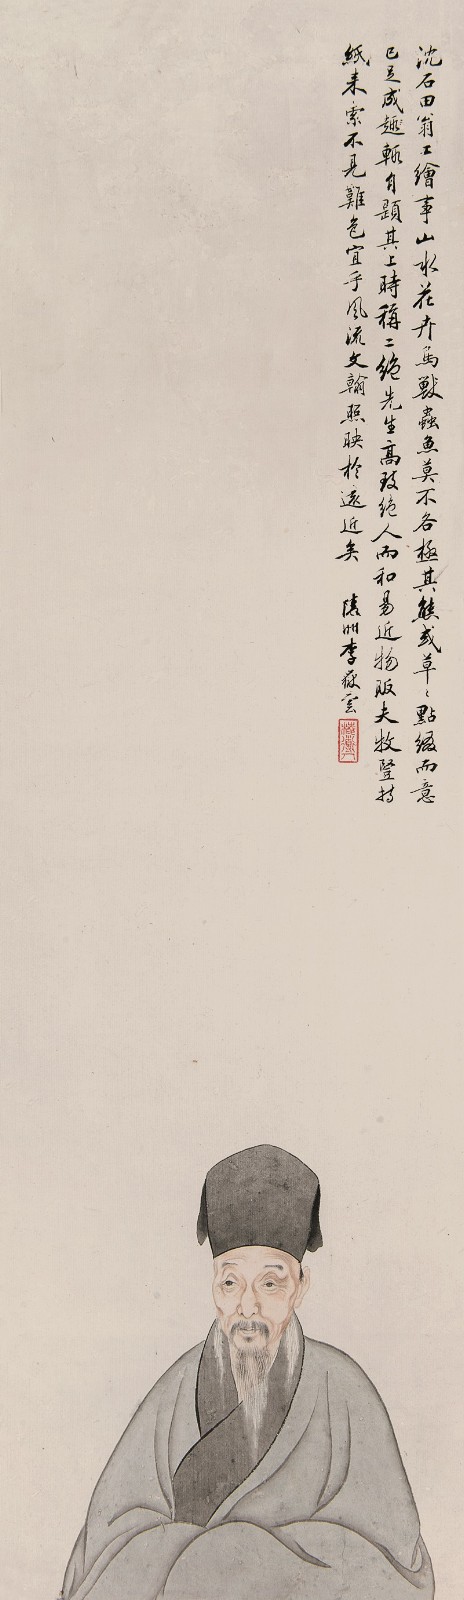 沈石田翁工繪事山水花卉鳥獸蟲魚莫不各極其態或草〻點綴而意
已足成趣輒自題其上時稱二絕先生高致絕人而和易近物販夫牧豎持
紙来索不見難色宜乎風流文翰照映於遠近矣
李